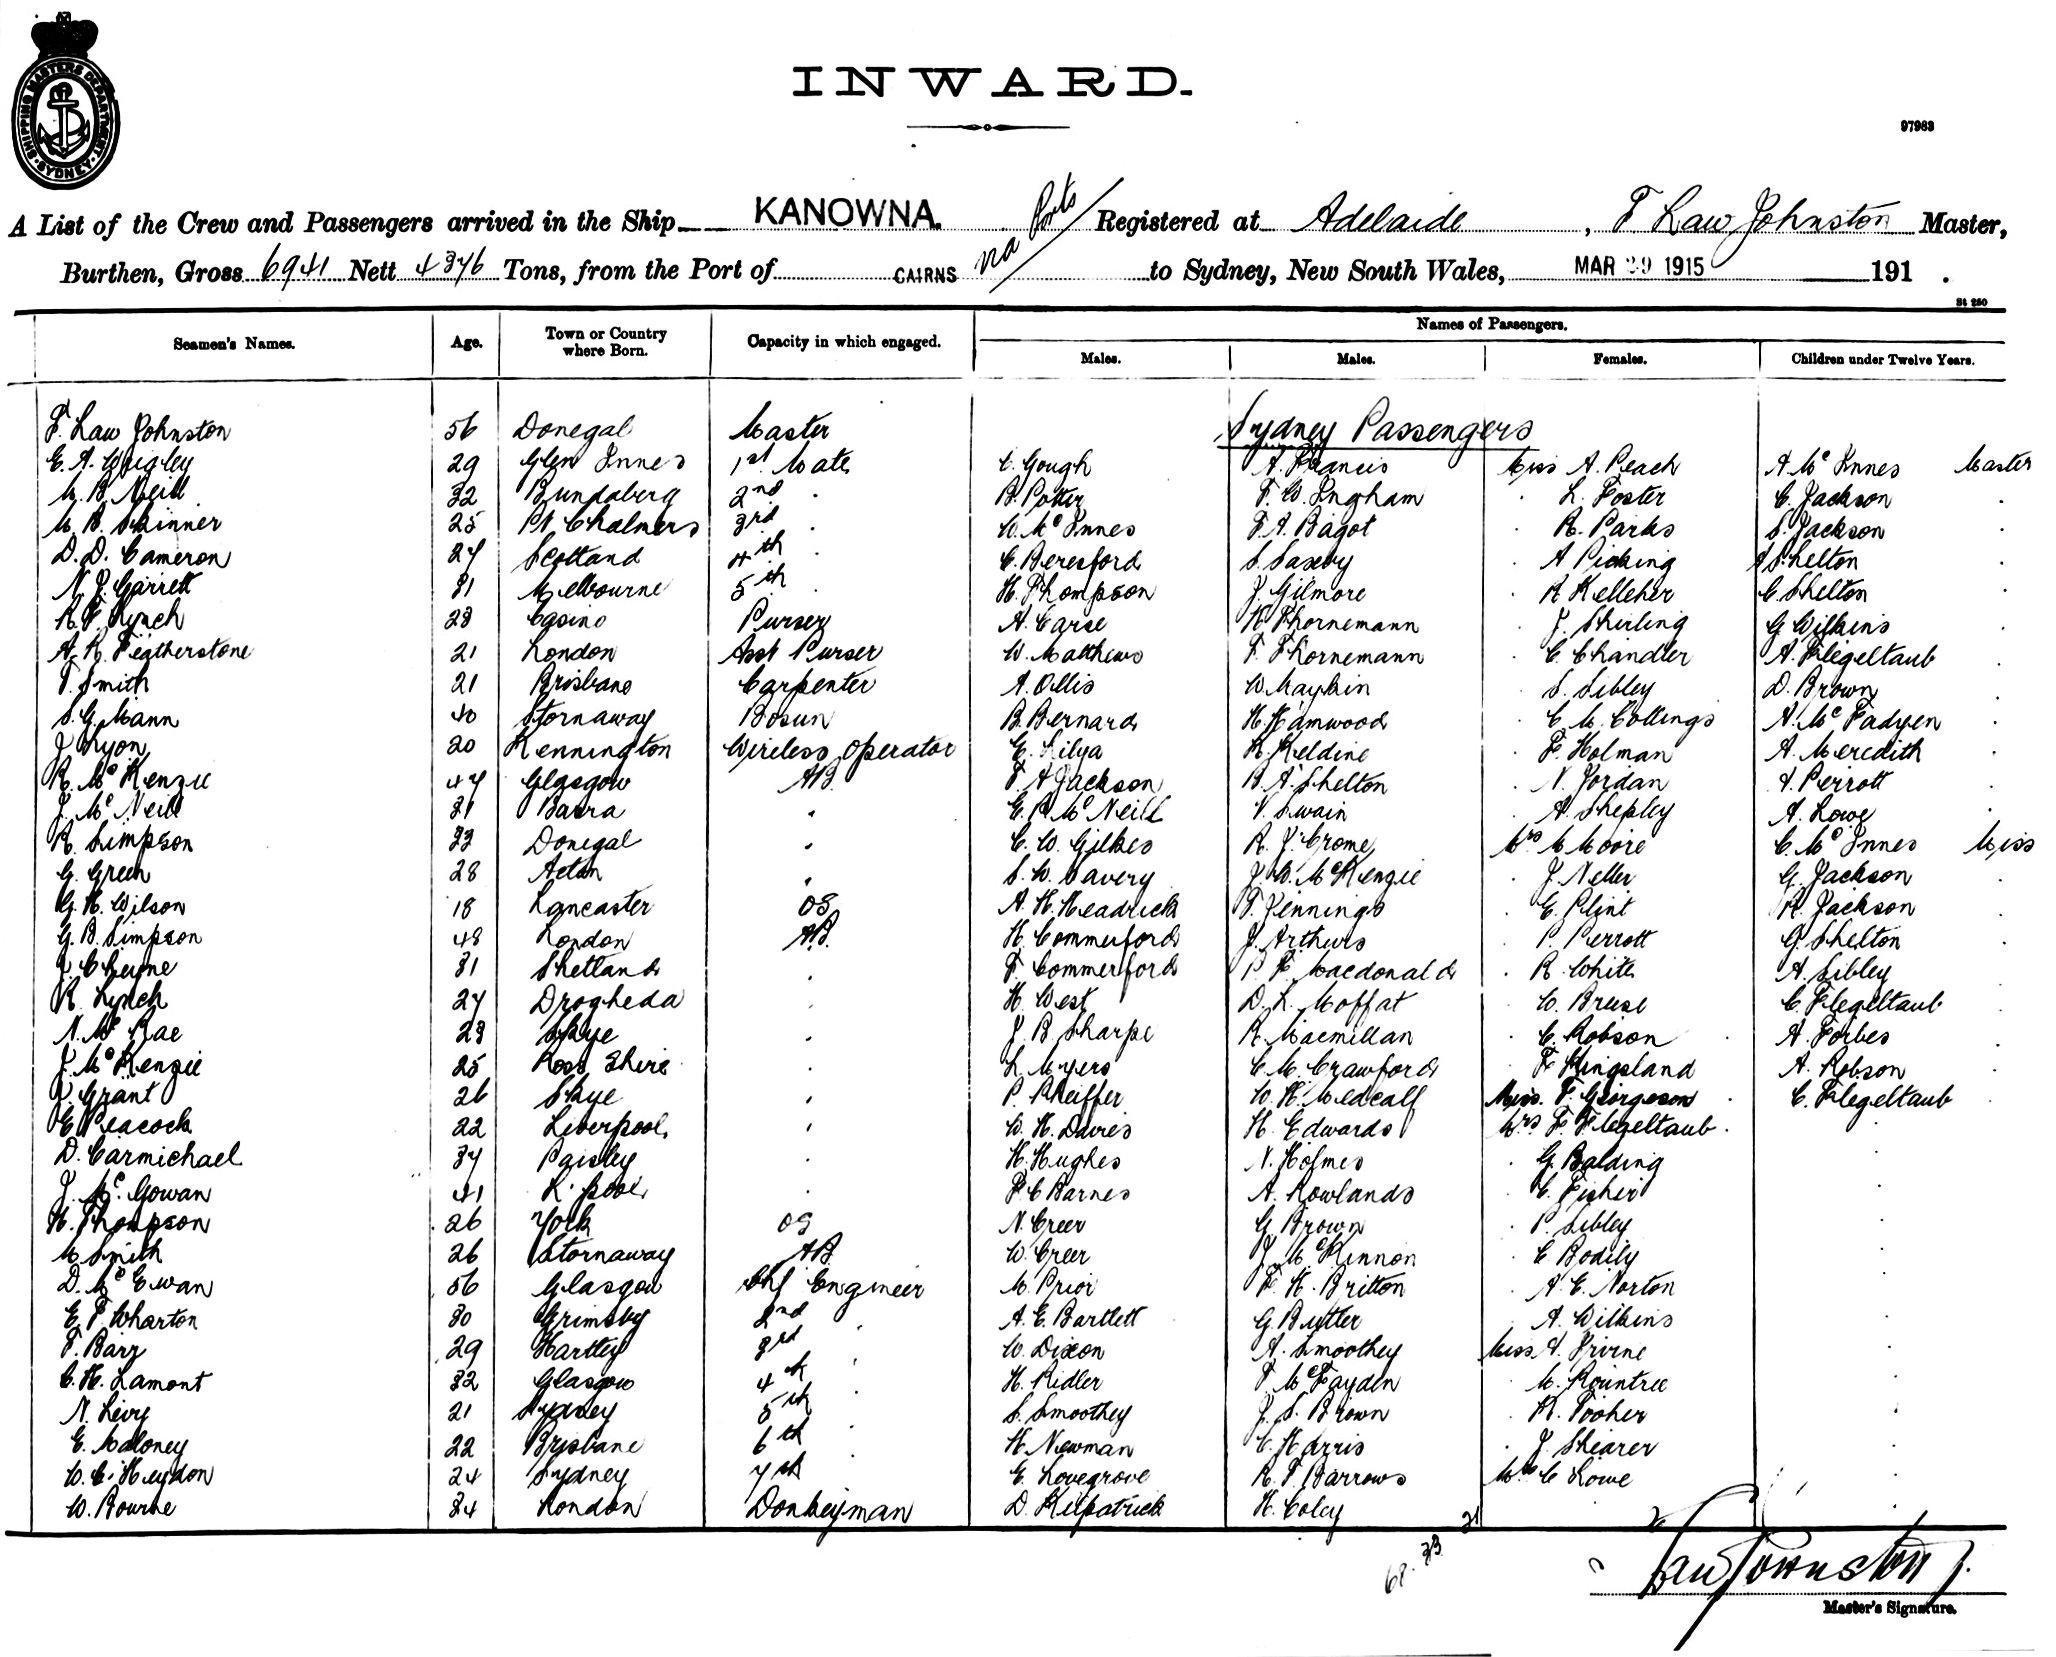 SHIPPING MASTERS DEPARTMENT
SYDNEY
INWARD.
97983
A List of the Crew and Passengers arrived in the Ship KANOWNA. via Ports Registered at Adelaide, F Law Johnston Master,
Burthen, Gross 6941 Nett 4376 Tons, from the Port of CAIRNS to Sydney, New South Wales, MAR 29 1915 191 .
St 250
Seamen's Names. Age. Town or Country where Born. Capacity in which engaged. Names of Passengers.
Males. Males. Females. Children under Twelve Years.
Sydney Passengers
F. Law Johnston 56 Donegal Master
E. A. Wrigley 29 Glen Innes 1st Mate C. Gough A. Francis Miss A. Peach A. McInnes Master
M. B. Neill 32 Bundaberg 2nd B. Potter F. W. Ingham L. Foster C. Jackson
M. B. Skinner 25 Pt Chalmers 3rd W. McInnes F. A. Bagot R. Parks S. Jackson
D. D. Cameron 27 Scotland 4th C. Beresford S. Saxby A Picking A Shelton
N. J. Garrett 31 Melbourne 5th H. Thompson J. Gilmore R Kelleher C. Shelton
R. F. Lynch 28 Casino Purser A. Carse H Thornemann J. Shirling G Wilkins
A. R. Featherstone 21 London Asst Purser W. Matthews F. Thornemann C. Chandler A. Flegeltaub
F. Smith 21 Brisbane Carpenter A. Ollis W Maykin S. Sibley D. Brown
S. G. Mann 40 Stornaway Bosun B. Bernard H. Hamwood C. M. Collings A. McFadyen
J. Lyon 20 Kennington Wireless Operator E. Lilya R Keldine F. Holman A. Meredith
R. McKenzie 47 Glasgow AB. F. A Jackson B. A. Shelton N. Jordan A Perrott
J. McNeill 31 Barra E. R. McNeill V. Swain A. Shepley A. Lowe
R. Simpson 33 Donegal C. W. Gilkes R. J. Crome Mrs M Moore C. McInnes Miss
G. Green 28 Acton S. W. Savery J. W. McKenzie J. Neller G. Jackson
G. H. Wilson 18 Lancaster OS A. H. Headrick F. Jennings E. Flint R. Jackson
G. B. Simpson 48 London AB. H. Commerford J. Arthurs P. Perrott G Shelton
J. Cheyne 31 Shetland F. Commerford P. F. Macdonald R. White A. Sibley
R. Lynch 27 Drogheda H. West D. L. Moffat W. Bruse C. Flegeltaub
N. McRae 23 Skye J. B. Sharpe R. Macmillan C. Robson A. Forbes
J. McKenzie 25 Ross Shire L. Myers C. M. Crawford F Kingsland A. Robson
J. Grant 26 Skye P. Pheiffer W. H. Medcalf Miss. F. Georgeson C. Flegeltaub
E Peacock 22 Liverpool W. H. Davies H. Edwards Mrs F. Flegeltaub
D. Carmichael 37 Paisley H. Hughes N. Holmes G. Balding
J. McGowan 41 L'pool F. C Barnes A. Rowlands E. Fisher
H. Thompson 26 York OS N. Creer G. Brown P. Sibley
M Smith 26 Stornaway AB. W. Creer J. McKinnon E Bodily
D. McEwan 56 Glasgow Chf Engineer M. Prior F. H. Britton A. E. Norton
E. F. Wharton 30 Grimsby 2nd A. E. Bartlett G. Butler A. Wilkins
F. Barr 29 Hartley 3rd W. Dixon A. Smoothey Miss A. Irvine
C. H. Lamont 32 Glasgow 4th H. Ridler F. McFayden M. Rountree
N. Levy 21 Sydney 5th S. Smoothey J. S. Brown R. Tooher
E. Maloney 22 Brisbane 6th H. Newman C. Harris J. Shearer
W. C. Heydon 24 Sydney 7th E. Lovegrove R. F. Barrows Mrs C Lowe
W. Bourne 34 London Donkeyman D. Kilpatrick H. Coley
Law Johnston
Master's Signature.